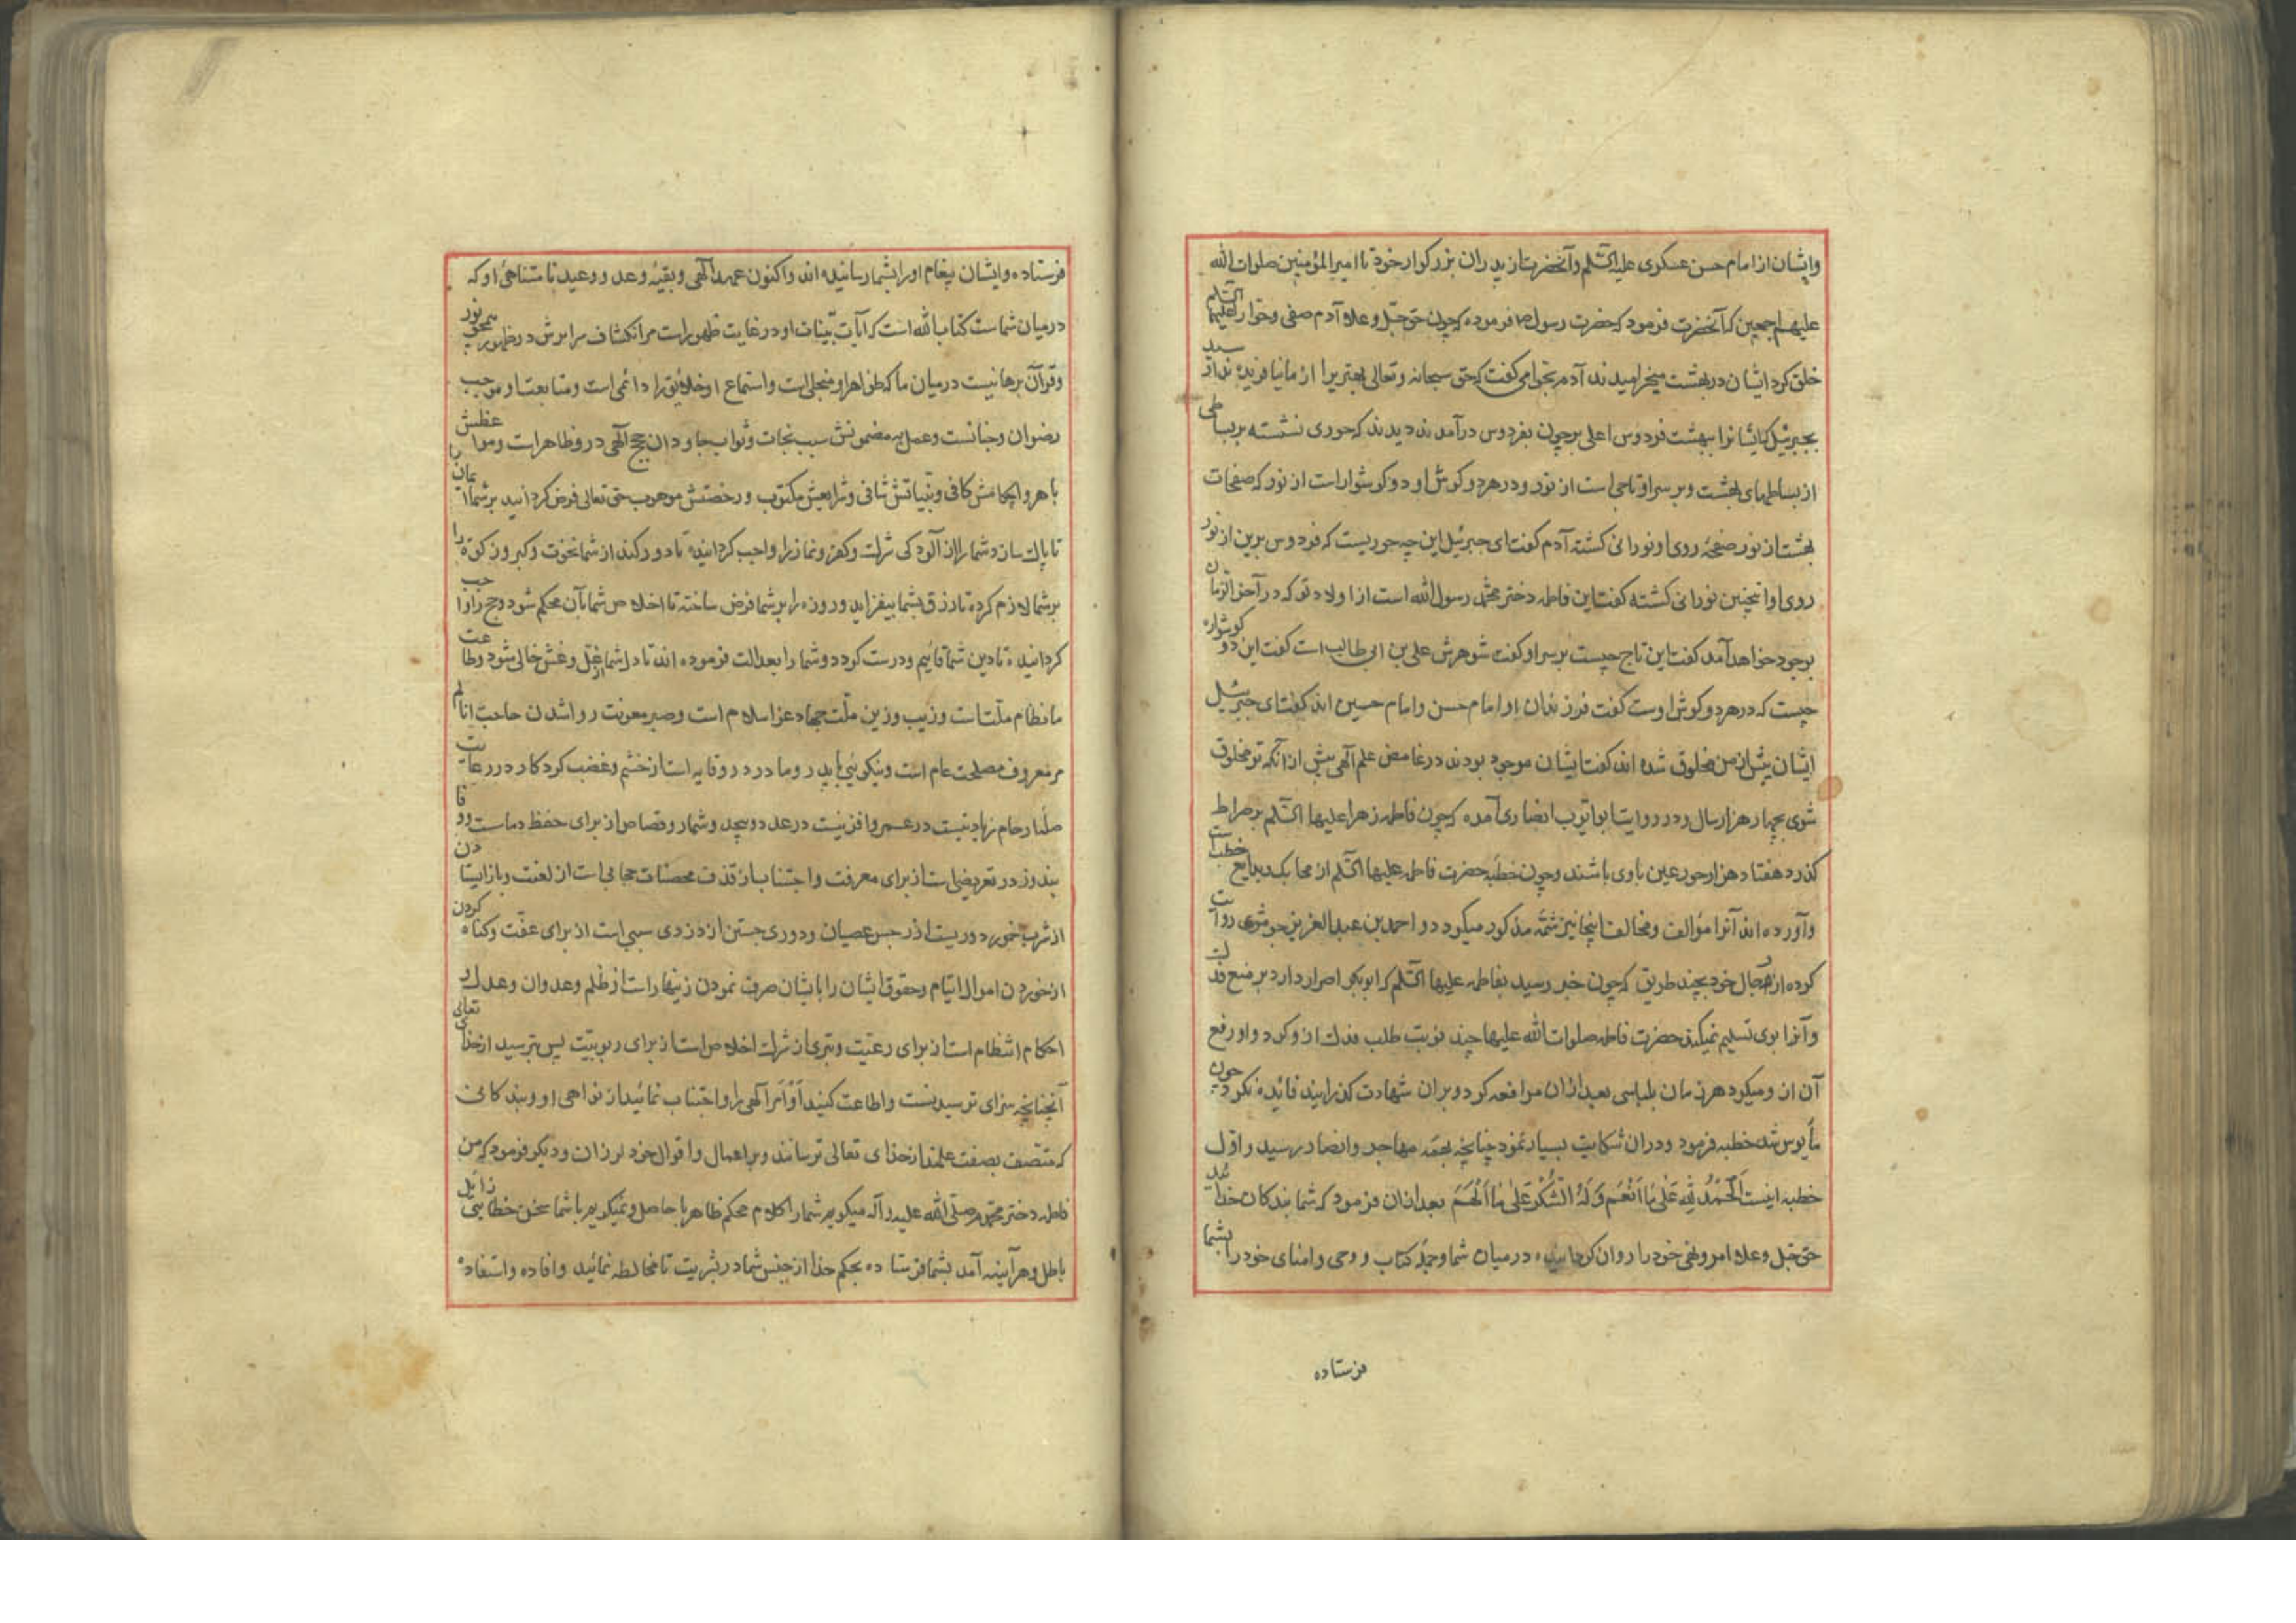 وایشان از امام حسن عسکری علیه السّلم وآنحضرت از پدران بزرکوار خود تا امیرالمؤمنین صلوات الله
علیهم اجمعین که آنحضرت فرمود که حضرت رسول فرموده که چون حق جلّ وعلا آدم صفی وحوّا را علیهما السّلم
خلق کرد ایشان در بهشت میخرامیدند آدم بحوّا می کفت که حق سبحانه وتعالی بهتریرا از ما نیافریده ندا رسید
بجبرئیل که ایشانرا ببهشت فردوس اعلی بر چون بفردوس درآمدند دیدند که حوری نشسته بر بساطی
از بساطهای بهشت وبر سر او تاجی است از نور ودر هر دو کوش او دو کوشوار است از نور که صفحات
بهشت از نور صفحهٔ روی او نورانی کشته آدم کفت ای جبرئیل این چه حوریست که فردوس برین از نور
روی او اینچنین نورانی کشته کفت این فاطمه دختر محمّد رسول الله است از اولاد تو که در آخر الزمان
بوجود خواهد آمد کفت این تاج چیست بر سر او کفت شوهرش علی بن ابی طالب است کفت این دو کوشواره
چیست که در هر دو کوش اوست کفت فرزندان او امام حسن وامام حسین اند کفت ای جبرئیل
ایشان پیش از من مخلوق شده اند کفت ایشان موجود بودند در غامض علم آلهی پیش از آنکه تو مخلوق
شوی بچهار هزار سال ودر روایت ابو ایّوب انصاری آمده که چون فاطمه زهرا علیها السّلم بر صراط
کذرد هفتاد هزار حور عین با وی باشند وچون خطبه حضرت فاطمه علیها السّلم از بدایع خطب است
وآورده اند آنرا مؤالف ومخالف اینجا نیز شمّه مذکور میکردد و احمد بن عبد العزیز جوهری روایت
کرده از رجال خود بچند طریق که چون خبر رسید بفاطمه علیها السّلم که ابو بکر اصرار دارد بر منع فدک
وآنرا بوی تسلیم نمیکند حضرت فاطمه صلوات الله علیها چند نوبت طلب فدک از و کرد واو رفع
آن از و میکرد هر زمان بلباسی بعد از ان مرافعه کرد وبران شهادت کذرانید فائده نکرد چون
مأیوس شد خطبه فرمود ودران شکایت بسیار نمود چنانچه بهمه مهاجر وانصار رسید واوّل
خطبه اینست اَلْحَمْدُ لِلّٰهِ عَلٰی مٰا اَنْعَمَ وَلَهُ الشُّکْرُ عَلٰی مٰا اَلْهَمَ بعد ازان فرمود که شما بندکان خدائید
حق جل وعلا امر ونهی خود را روان کردانیده درمیان شما وحمله کتاب و وحی وامنای خود را بشما
فرستاده
فرستاده وایشان پیغام او را بشما رسانیده اند واکنون عهد آلهی وبقیّهٔ وعد ووعید نا متناهیٔ او که
درمیان شماست کتاب الله است که آیات بیّنات او در غایت ظهور است مر انکشاف سرایرش در ظهور
وقرآن برهانیست درمیان ما که ظواهر او منجلی است واستماع او خلایق را داعی است ومتابعت او موجب
رضوان وجنانست وعمل به مضمونش سبب نجات وثواب جاودان حجج آلهی در و ظاهر است ومواعظش
باهر واحکامش کافی وبیّناتش شافی وشرایعش مکتوب ورخصتش موهوب حق تعالی فرض کردانید بر شما ایمان را
تا پاک سازد شما را از آلودکی شرک وکفر ونماز را واجب کردانیده تا دور کند از شما نخوت وکبر وزکوة را
بر شما لازم کرده تا رزق بشما بیفزاید وروزه را بر شما فرض ساخته تا اخلاص شما بآن محکم شود وحج را واجب
کردانیده تا دین شما قائم ودرست کردد وشما را بعدالت فرموده اند تا دلهای شما از غلّ وغش خالی شود وطاعت
ما نظام ملّت است وزیب وزین ملّت جهاد عز اسلام است وصبر معونت روا شدن حاجت انام
مر معروف مصلحت عام است ونیکوئی با پدر ومادر در و وقایه است از خشم وغضب کردکار در رعایت
صلهٔ ارحام زیادتیست در عمر وافزنیست در عدد بیحد وشمار وقصاص از برای حفظ دماست و وفا
بنذور در تعریض است از برای معرفت واجتناب از قذف محصنات حجابی است از لعنت وبازایستادن
از شرب خمور دوریست از رجس عصیان ودوری جستن از دزدی سببی است از برای عفّت وکناه کردن
از خوردن اموال ایتام وحقوق ایشان را بایشان صرف نمودن زینهار است از ظلم وعدوان وعدل در
احکام انتظام است از برای رعیّت وتبری از شرک اخلاص است از برای ربوبیّت پس بترسید از خدای تعالی
آنچنانچه سزای ترسیدنست واطاعت کنید اَوٰامَر آلهی را واجتناب نمائید از نواهی او وبندکانی
که متّصف بصفت علمند از خدای تعالی ترسانند وبر اعمال واقوال خود لرزان ودیکر فرمود که من
فاطمه دختر محمّدم صلّی الله علیه وآله میکویم شما را کلام محکم ظاهر با حاصل ونمیکویم با شما سخن خطا یعنی زائل
باطل وهر آینه آمد بشما فرستاده بحکم خدا از جنس شما در بشریت تا مخالطه نمائید وافاده واستفاده